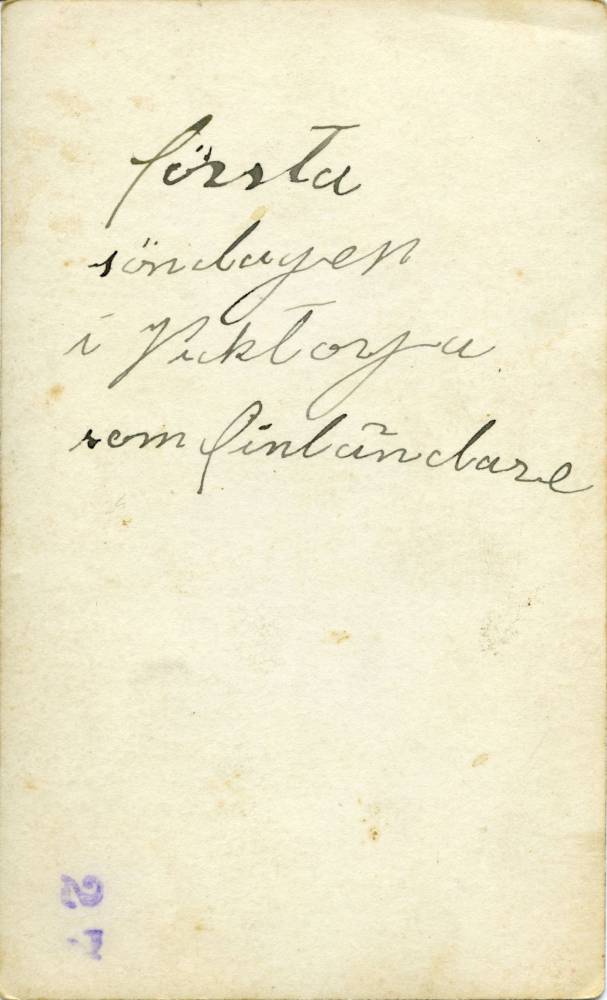 första
söndagen
i Vicktorya
som finländare
21